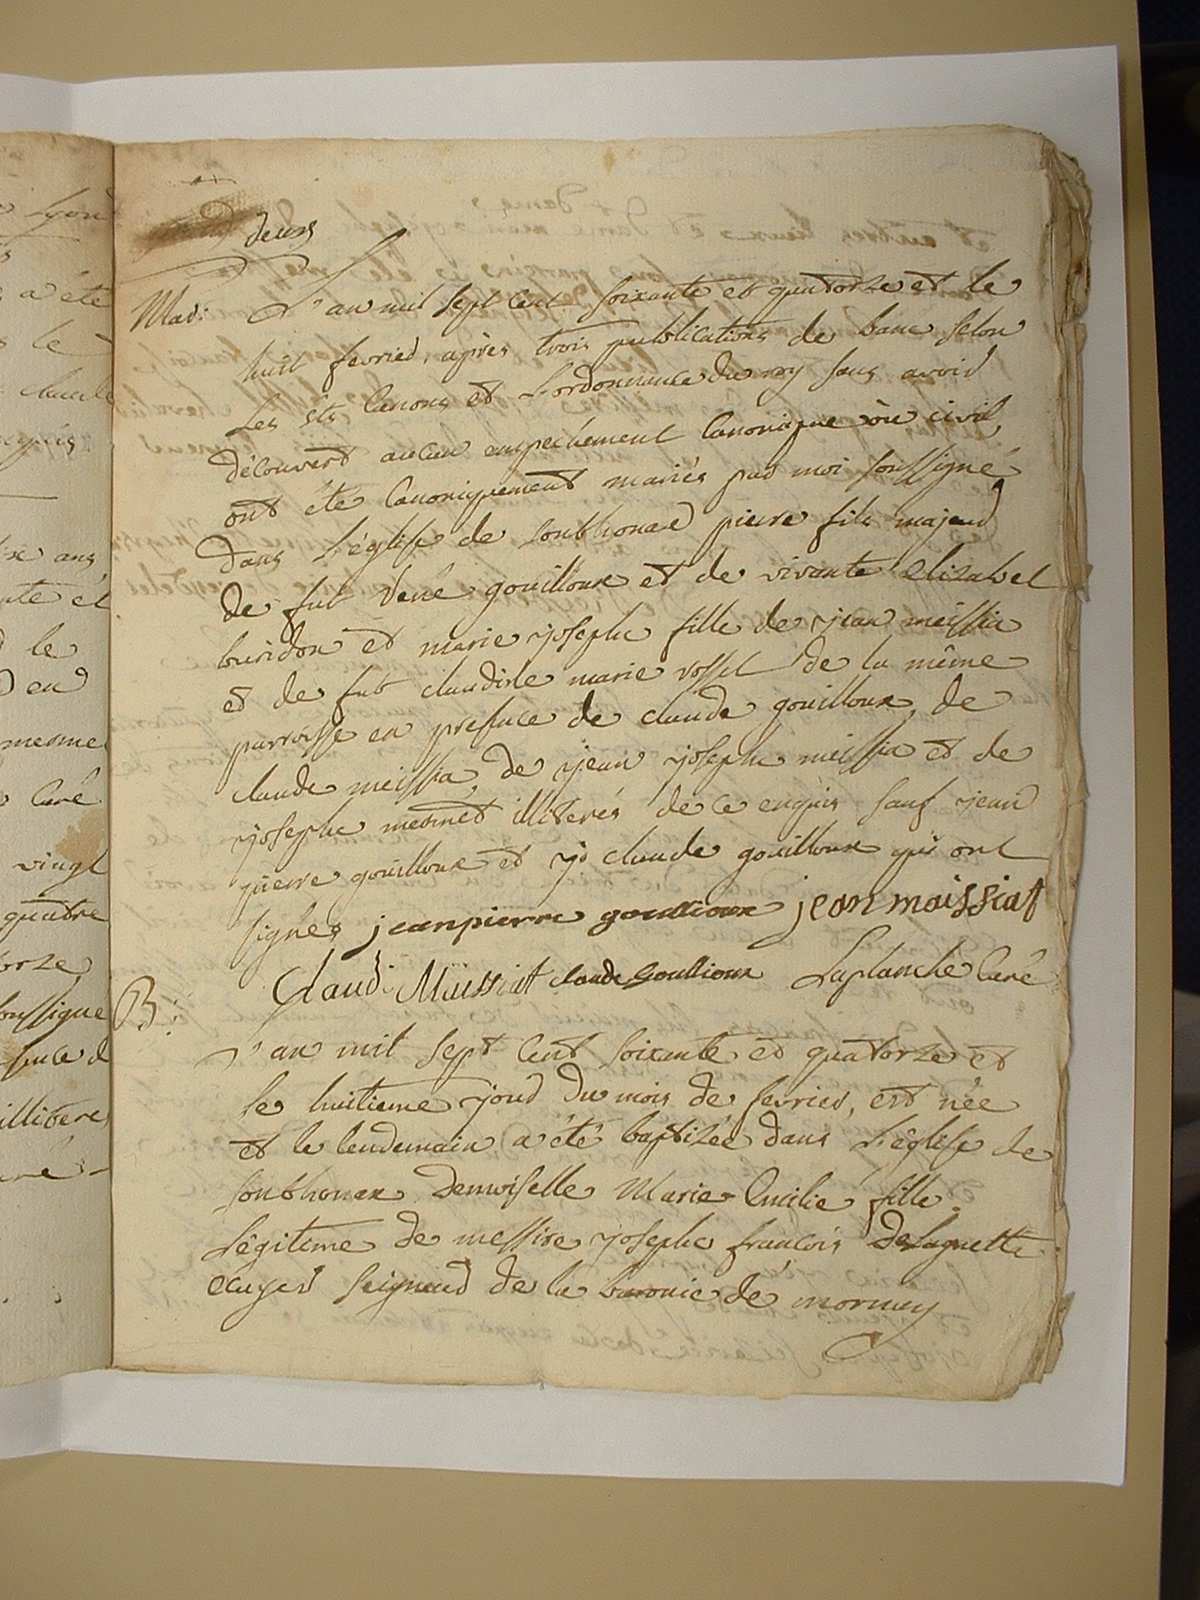 deux
Mad: L'an mil sept cent soixante et quatorze et le
huit fevried, après trois publications de banc selon
Les sts Canons et L'ordonnance du roy sans avoid
découvert aucun empechement Canonique ou civil,
ont été Canoniquement mariés pad moi soussigné
dans L'église de Sonthonax pierre fils majeud
de fut René gouilloux et de vivante Elizabet
buridon et marie joseph fille de jean meissia
et de fut claudine marie rosset de la même
parroisse en presence de claude gouilloux, de
claude meissia, de jean joseph meissia et de
joseph mermet illiterés de ce enquis sauf jean
pierre gouilloux et claude gouilloux qui ont
signes jeanpierre goullioux jean maissiat
Claudi Maissiat claude Goullioux Laplanche Curé
B: L'an mil sept cent soixante et quatorze et
le huitieme joud du mois de fevried, est née
et le lendemain a été baptizée dans L'église de
sonthonax demoiselle Marie Emilie fille
Légitime de messire joseph francois delaguette
ecuyer seigneud de la baronie de mornay
Lyon
a été
le
enquis
ans
et
le
en
mesme
Curé
vingt
quatre
soussigné
illiteres